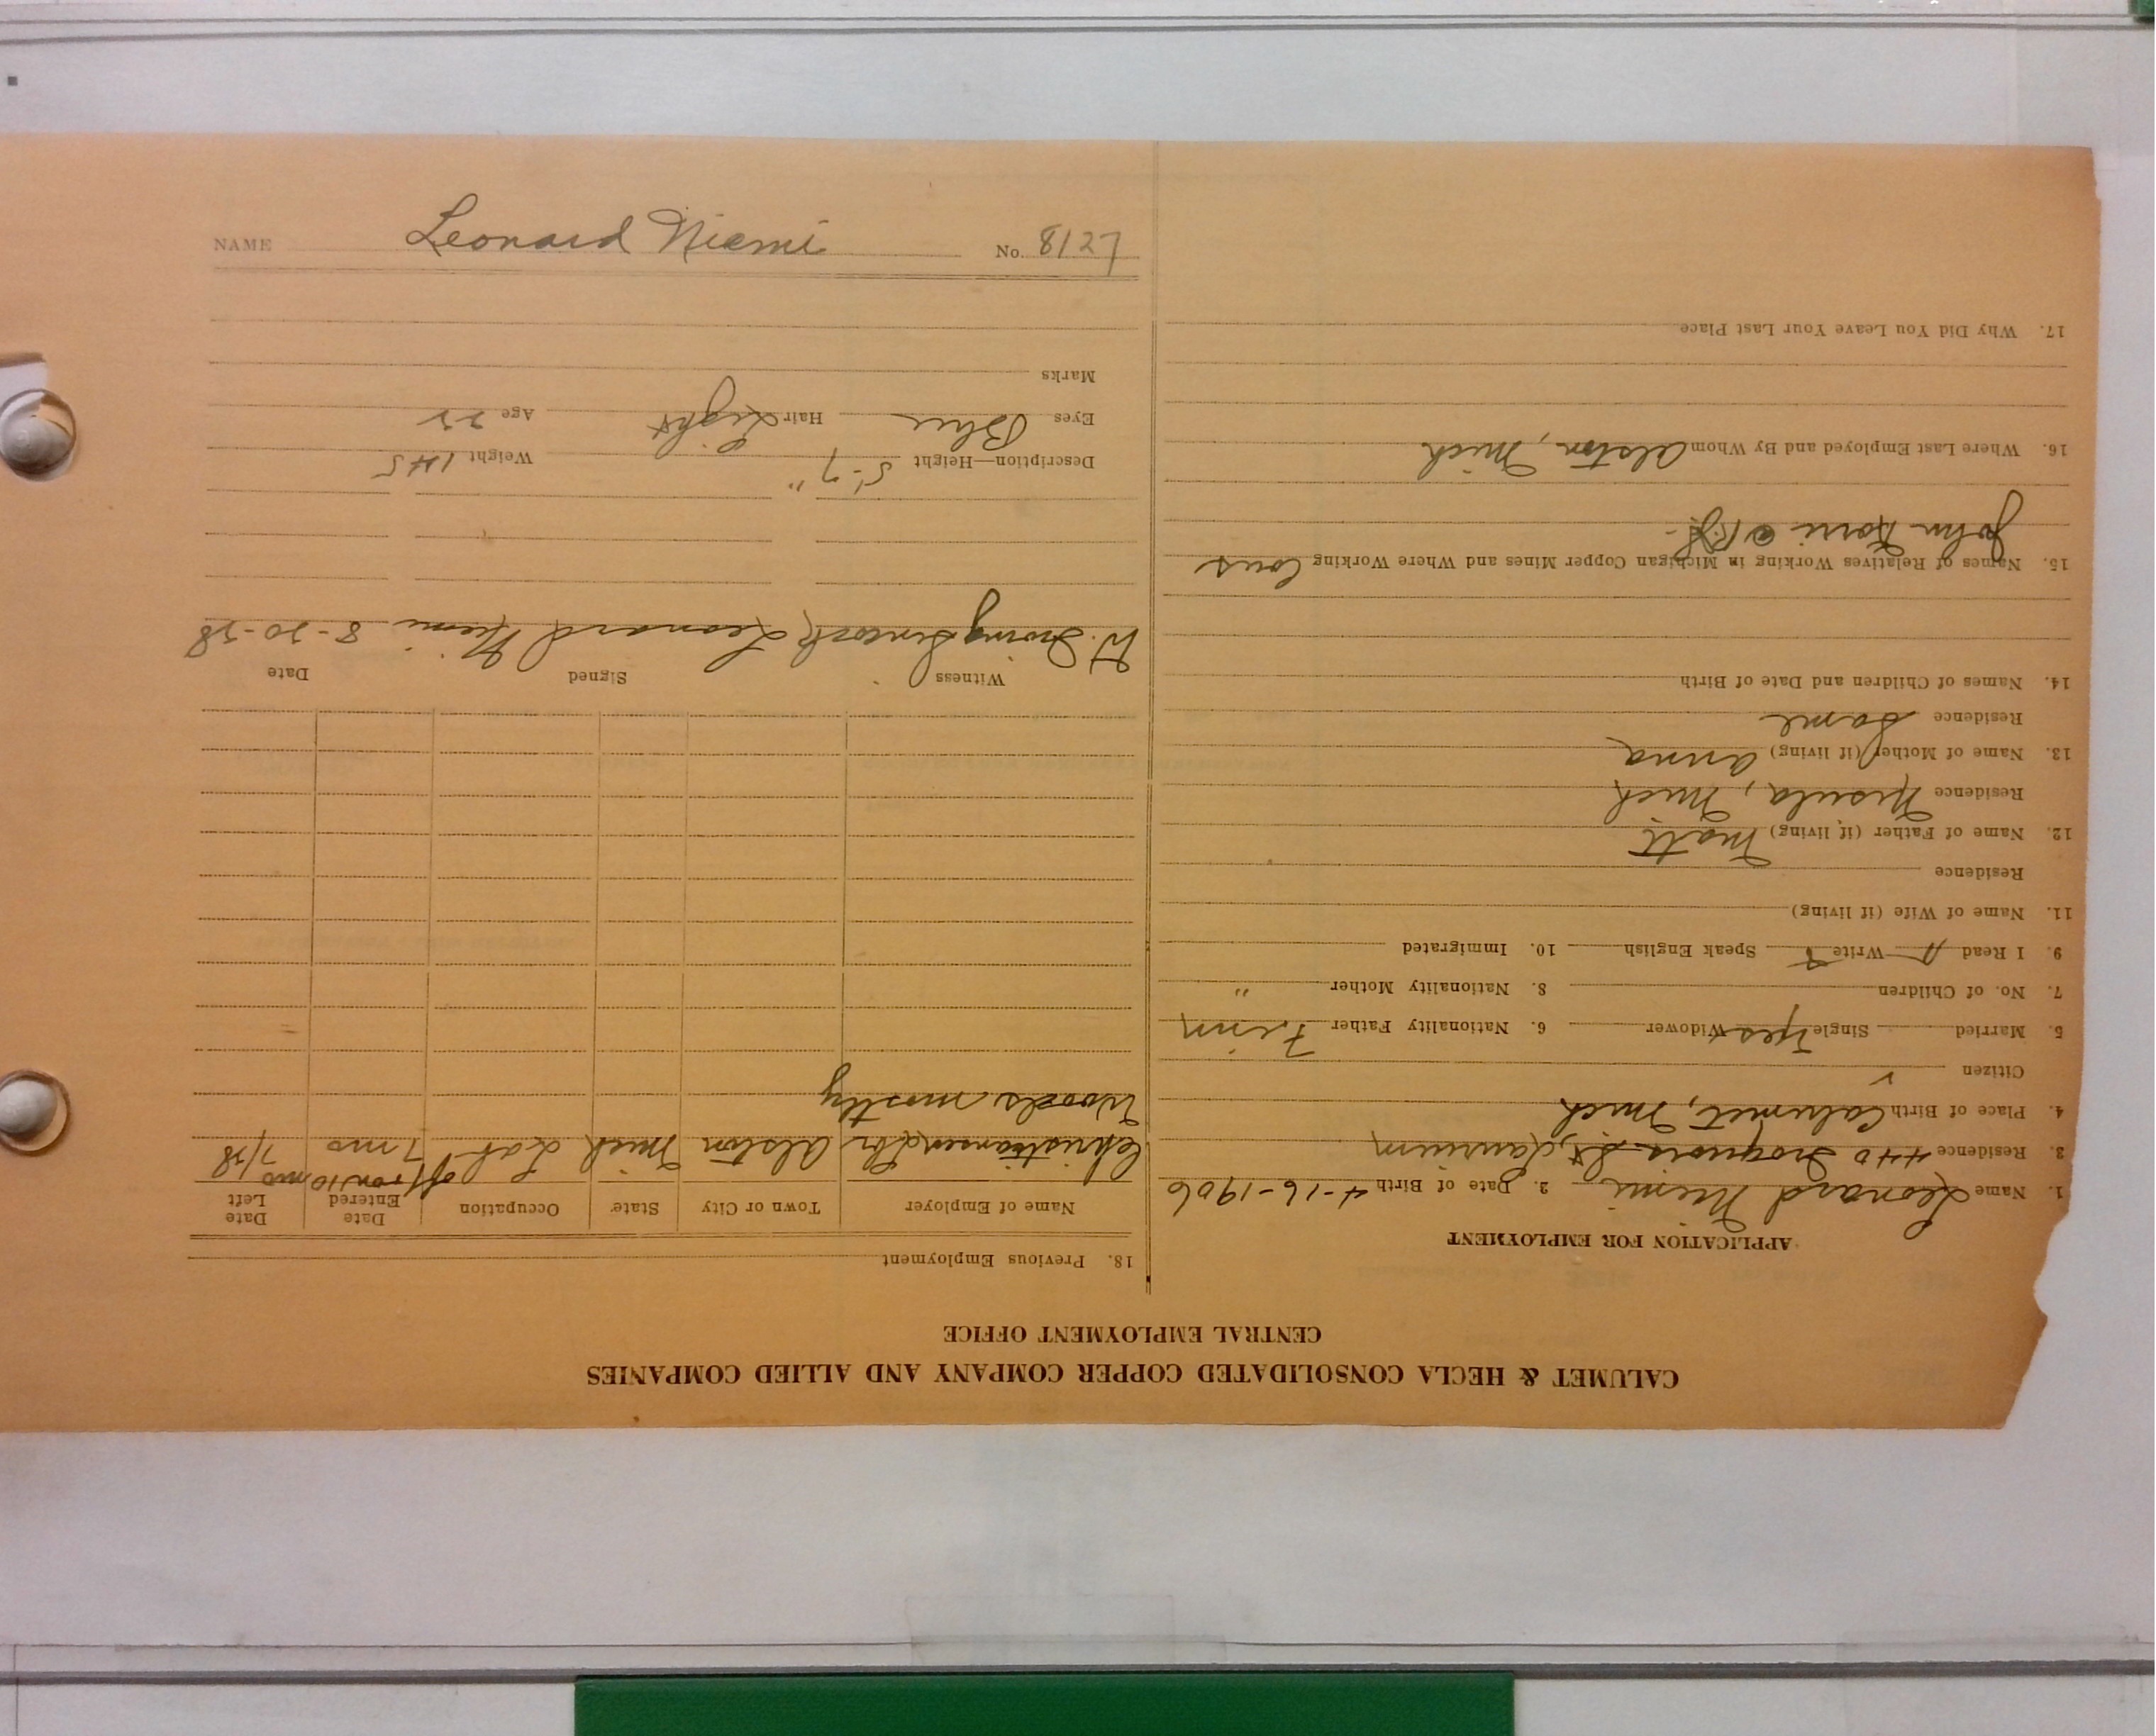 CALUMET & HECLA CONSOLIDATED COPPER COMPANY AND ALLIED COMPANIES
CENTRAL EMPLOYMENT OFFICE
APPLICATION FOR EMPLOYMENT
1. Name Leonard Niemi 2. Date of Birth 4-16-1906
3. Residence 440 Iroquois St, Laurium
4. Place of Birth Calumet, Mich
Citizen ✓
5. Married Single Yes Widower 6. Nationality Father Finn
7. No. of Children 8. Nationality Mother "
9. I Read Write Speak English 10. Immigrated
11. Name of Wife (if living)
Residence
12. Name of Father (if living) Matt
Residence Nisula, Mich
13. Name of Mother (if living) Anna
Residence Same
14. Names of Children and Date of Birth
15. Names of Relatives Working in Michigan Copper Mines and Where Working Cous
John
16. Where Last Employed and By Whom Alston, Mich
17. Why Did You Leave Your Last Place
18. Previous Employment
Name of Employer Town or City State Occupation Date Entered Date Left
Christiansen Lbr Alston Mich Lab off & on 10 mo 7/28
7 mo
Woods mostly
Witness Signed Date
W. Irving Leonard Niemi 8-20-28
Description—Height 5'-7" Weight 145
Eyes Blue Hair Light Age 22
Marks
NAME Leonard Niemi No. 8127